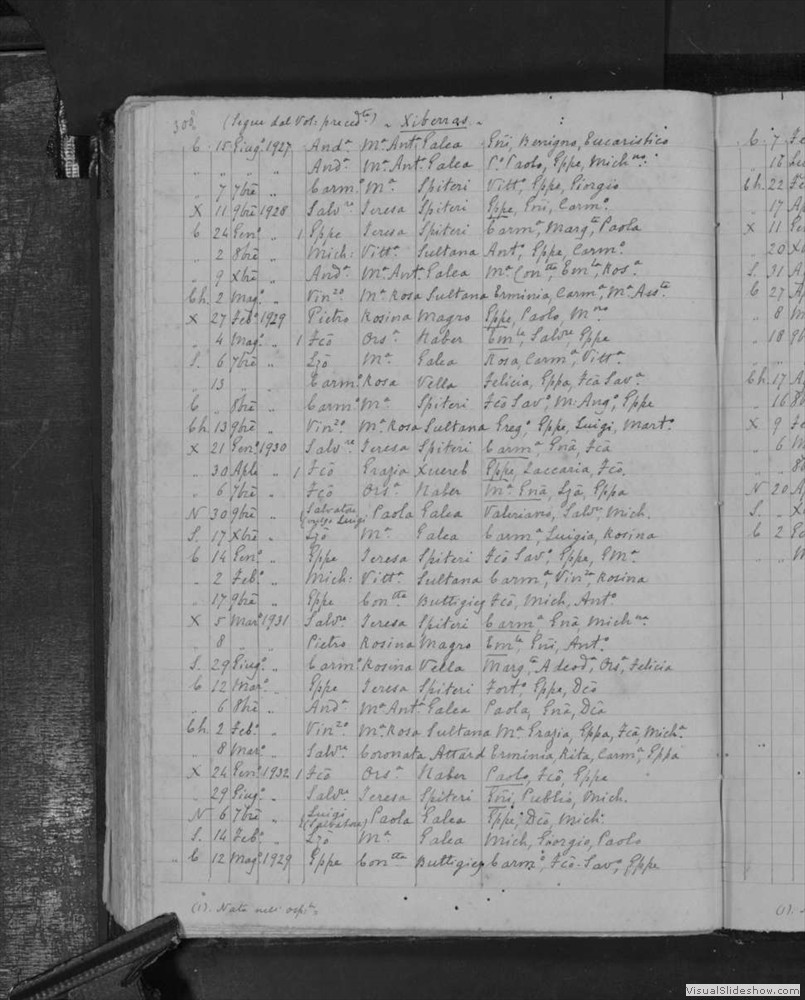 308 (Segue dal Vol: preced.te) - Xiberras -
C 15 Giug.o 1927 And.a M.a Ant. Galea Gñi, Benigno, Eucaristico
" " " " And.a M.a Ant. Galea P.o Paolo, Gppe, Mich.no
" 7 7bre " Carm.o M.a Spiteri Vitt.o, Gppe, Giorgio
X 11 9bre 1928 Salv.re Teresa Spiteri Gppe, Gñi, Carm.o
C 24 Gen.o " 1 Gppe Teresa Spiteri Carm.a, Marg.ta, Paola
" 2 8bre " Mich: Vitt.a Sultana Ant.o, Gppe, Carm.o
" 9 Xbre " And.a M.a Ant. Galea M.a Con.tta, Em.la, Ros.a
Ch. 2 Mag.o " Vin.zo M.a Rosa Sultana Erminia, Carm.a, M.a Ass.ta
X 27 Feb.o 1929 Pietro Rosina Magro Gppe, Paolo, M.no
" 4 Mag.o " 1 Fcõ Ors.a Naber Em.le, Salv.re, Gppe
S. 6 7bre " Lzõ M.a Galea Rosa, Carm.a, Vitt.a
" 13 " " Carm.o Rosa Vella Felicia, Gppa, Fcã Sav.a
C " 8bre " Carm.o M.a Spiteri Fcõ Sav.o, M. Ang.o, Gppe
Ch. 13 9bre " Vin.zo M.a Rosa Sultana Greg.o, Gppe, Luigi, Mart.o
X 21 Gen.o 1930 Salv.re Teresa Spiteri Carm.a, Gnã, Fcã
" 30 Aple " 1 Fcõ Grazia Xuereb Gppe, Zaccaria, Fcõ
" 6 7bre " Fcõ Ors.a Naber M.a Gnã, Lzã, Gppa
N 30 9bre " Salvatore (vulgo Luigi) Paola Galea Valeriano, Salv.re, Mich.
S. 17 Xbre " Lzõ M.a Galea Carm.a, Luigia, Rosina
C 14 Gen.o " Gppe Teresa Spiteri Fcõ Sav.o, Gppe, Gm.a
" 2 Feb.o " Mich: Vitt.a Sultana Carm.a, Vin.za, Rosina
" 17 9bre " Gppe Con.tta Buttigieg Fcõ, Mich, Ant.o
X 5 Mar.o 1931 Salv.re Teresa Spiteri Carm.a Gnã Mich.na
" 8 " Pietro Rosina Magro Em.le, Gñi, Ant.o
S. 29 Giug.o " Carm.o Rosina Vella Marg.ta, Adeod.a, Ors.a, Felicia
C 12 Mar.o " Gppe Teresa Spiteri Fort.o, Gppe, Dcõ
" 6 8bre " And.a M.a Ant. Galea Paola, Gnã, Dcã
Ch. 2 Feb.o " Vin.zo M.a Rosa Sultana M.a Grazia, Gppa, Fcã, Mich.a
" 8 Mar.o " Salv.re Coronata Attard Erminia, Rita, Carm.a, Gppa
X 24 Gen.o 1932 1 Fcõ Ors.a Naber Paolo, Fcõ, Gppe
" 29 Giug.o " Salv.re Teresa Spiteri Gñi, Publio, Mich.
N 6 7bre " Luigi (Salvatore) Paola Galea Gppe, Dcõ, Mich:
S. 14 Feb.o " Lzõ M.a Galea Mich, Giorgio, Paolo
" C 12 Mag.o 1929 Gppe Con.tta Buttigieg Carm.o, Fcõ-Sav.o, Gppe
(1). Nato nell' osp.le
C. 7
" 16
Ch. 22
" 17
X 11
" 20
S. 31
C 27
" 8
" 18
Ch. 17
" 16
X 9
" 6
N 20
S. "
C 2
(1).
VisualSlideshow.com